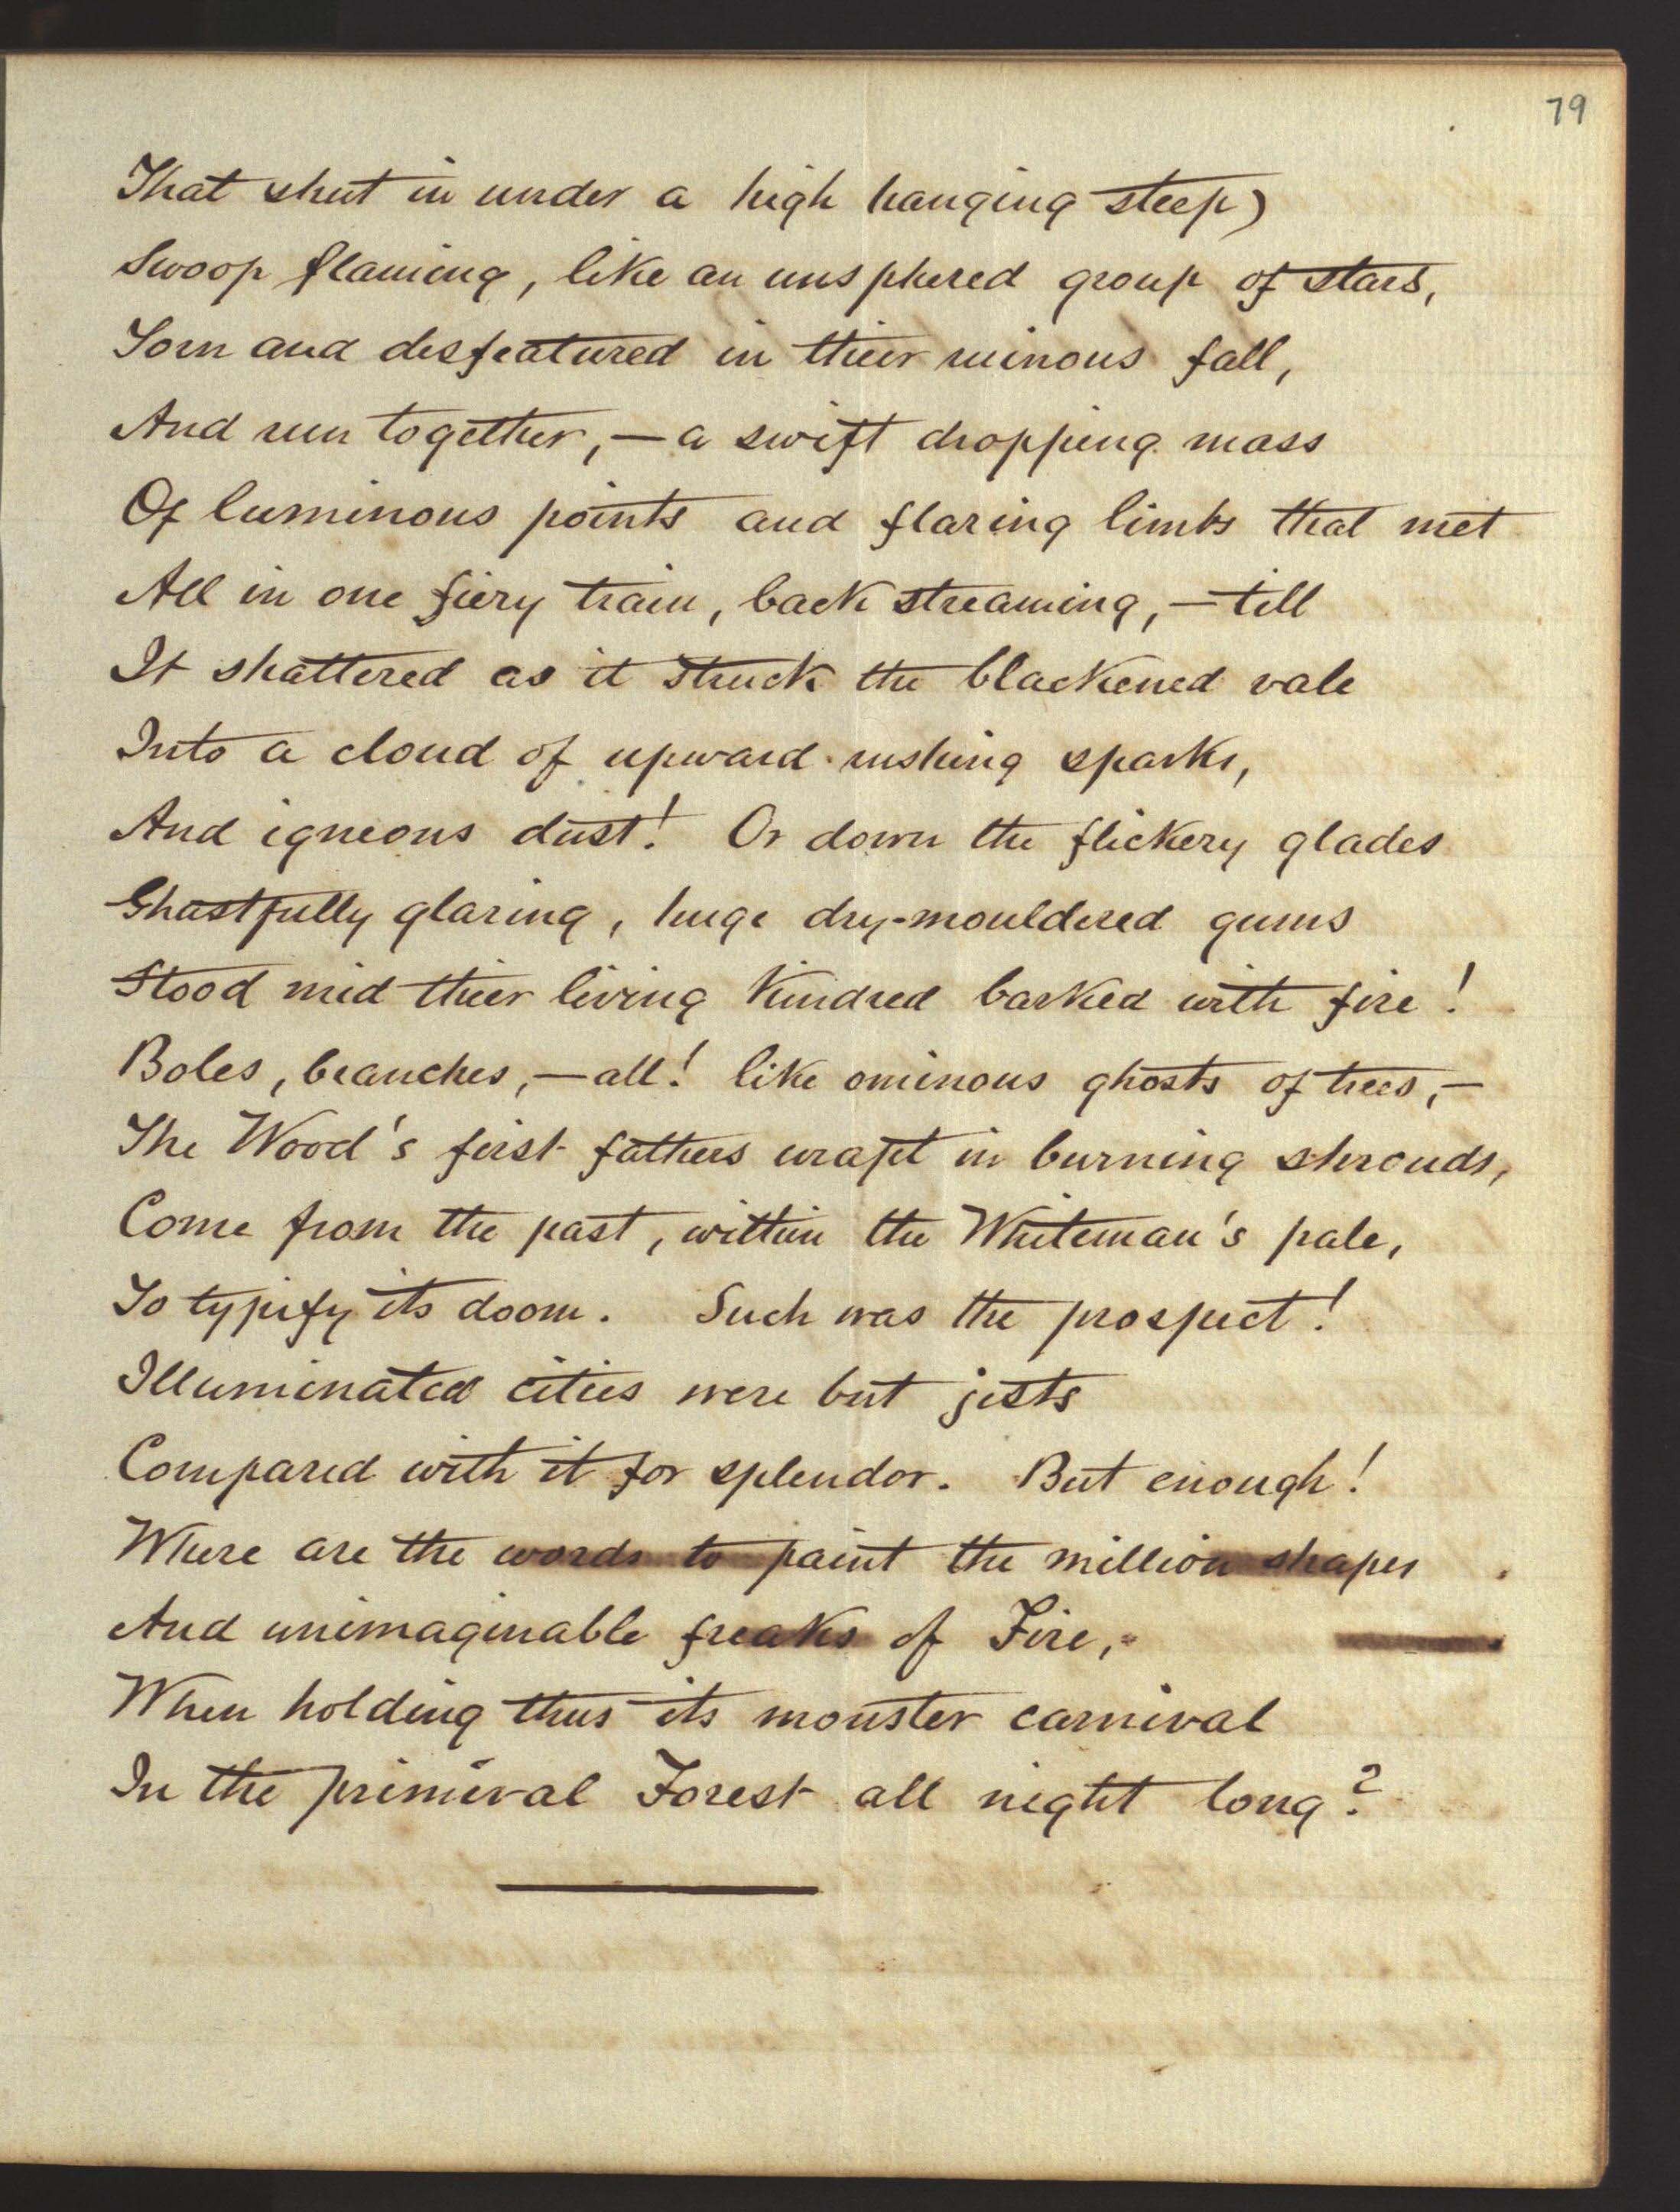 79
That shut in under a high hanging steep)
Swoop flaming, like an unsphered group of stars,
Torn and disfeatured in their ruinous fall,
And run together, — a swift dropping mass
Of luminous points and flaring limbs that met
All in one fiery train, back streaming, — till
It shattered as it struck the blackened vale
Into a cloud of upward-rushing sparks,
And igneous dust! Or down the flickery glades
Ghastfully glaring, huge dry-mouldered gums
Stood mid their living kindred barked with fire!
Boles, branches, — all! like ominous ghosts of trees, —
The Wood's first fathers wrapt in burning shrouds,
Come from the past, within the Whiteman's pale,
To typify its doom. Such was the prospect!
Illuminated cities were but jests
Compared with it for splendor. But enough!
Where are the words to paint the million shapes
And unimaginable freaks of Fire,
When holding thus its monster carnival
In the primeval Forest all night long?